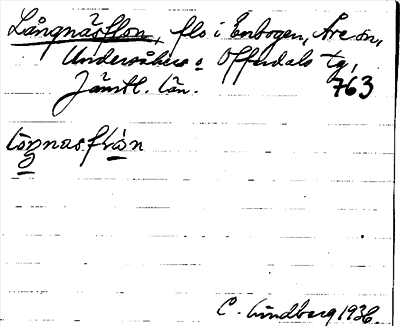 Långnäsflon, flo i Enbogen, Åre sn,
Undersåkers o Offerdals tg,
Jämtl. län. 763
C. Lindberg 1936.